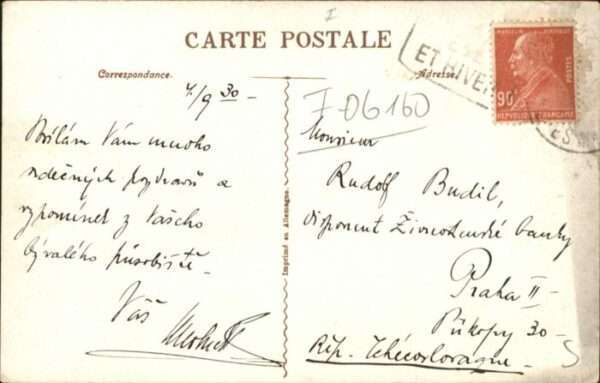 CARTE POSTALE
Correspondance.
Adresse.
ET HIVER
MARCELIN BERTHELOT
POSTES
90c
REPUBLIQUE FRANÇAISE
4/9 30 –
7-06160
Posílám Vám mnoho
srdečných pozdravů a
vzpomínek z Vašeho
bývalého působiště –
Váš
Imprimé en Allemagne.
Monsieur
Rudolf Budil,
disponent Živnostenské banky
Praha II –
Příkopy 30 –
Rép. Tchécoslovaque –